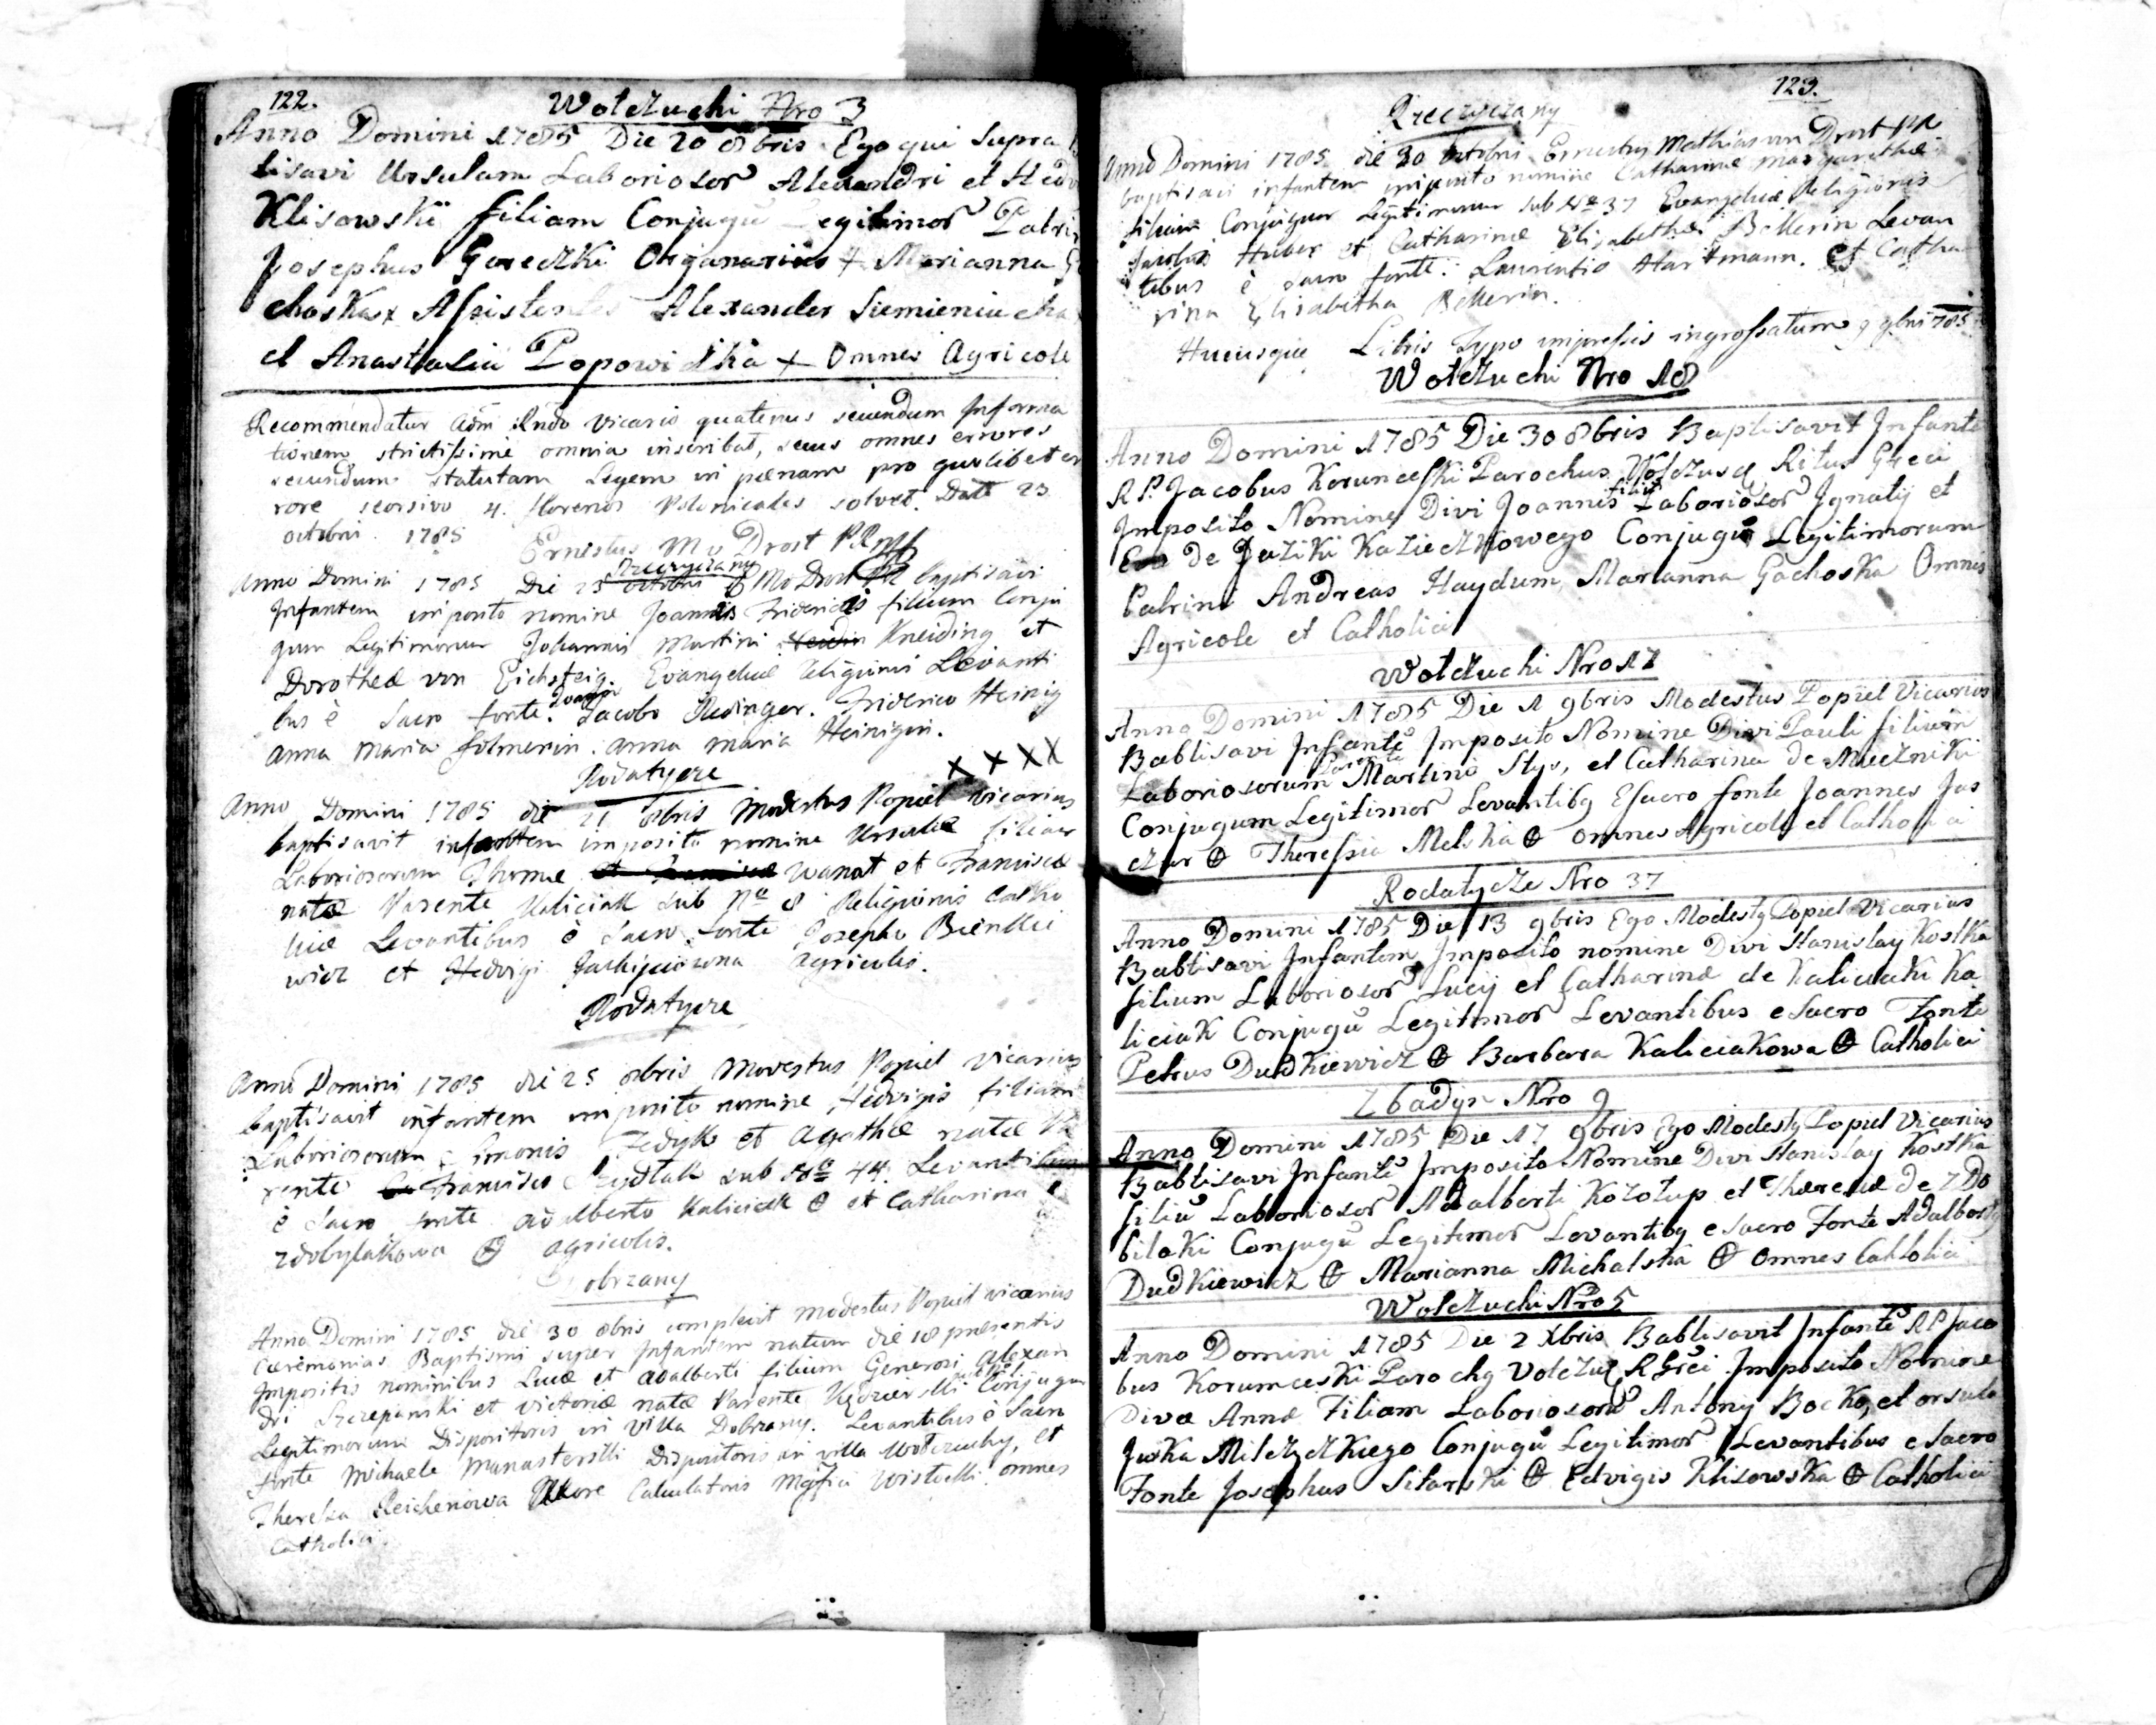 122.
Wołczuchi Nro 3
Anno Domini 1785 Die 20 8bris Ego qui Supra
tisavi Ursulam Laboriosor Alexandri et Hedv
Klisowskii filiam Conjugũ Legitimor Patrin
Josephus Gereczki Organarius + Marianna
choska x Assistentes Alexander Siemieniucha
et Anastasia Popowiczka + Omnes Agricole
Recommendatur adm Rndo Vicario quatenus secundum Informa
tionem strictissime omnia inscribat, secus omnes errores
secundum statutam Legem in poenam pro quolibet er
rore seorsivo 4. florenos Polonicales solvet. Datt 23
octobri 1785
Ernestus M v Drost
Rzeczyczany
Anno Domini 1785 Die 23 octobri MvDrost baptisavi
Infantem imposito nomine Joannis Friderici filium Conju
gum Legitimorum Johannis Martini Kneiding et
Dorotheæ von Eichsteig. Evangelicæ Religionis Levanti
bus è Sacro fonte. Jacobo Redinger. Friderico Heinig
Anna Maria folmerin. Anna Maria Heinigin.
Rodatycze x x x x
Anno Domini 1785 die 21 8bris Modestus Popiel Vicarius
baptisavit infantem imposito nomine Ursulæ filiam
Laboriosorum Thomæ et Franciscæ Wanat et Franciscæ
natæ Parente Kaliciak sub No 8 Religionis Catho
licæ Levantibus è Sacro fonte Josepho Bienkie
wicz et Hedvigi agricolis.
Rodatycze
Anno Domini 1785 die 25 8bris Modestus Popiel Vicarius
baptisavit infantem imposito nomine Hedvigis filiam
Laboriosorum Simonis Fedyk et Agathæ natæ Pa
rente Francisco sub No 44. Levantibus
è Sacro fonte Adalberto Kaliciak ⊕ et Catharina
Zdobylakowa ⊕ agricolis.
Dobrzany
Anno Domini 1785 die 30 8bris complevit Modestus Popiel vicarius
Cæremonias Baptismi super Infantem natum die 18 præsentis
Impositis nominibus Lucæ et Adalberti filium Generosi Alexan
dri Szczepanski et Victoriæ natæ Parente Kędzierski Conjugum
Legitimorum Dispositoris in villa Dobrzany. Levantibus è Sacro
fonte Michaele Manasterski Dispositoris in villa Wotczuchy, et
Theresa Reichenowa Uxore Calculatoris Mgfici Wisłocki omnes
Catholici.
123.
Rzeczyczany
Anno Domini 1785 die 30 octobri Ernestus Mathias von Drost pp
baptisavi infantem imposito nomine Catharinæ Margarethæ
filiam Conjugum Legitimorum sub No 37 Evangelicæ Religionis
Jacobi Huber et Catharinæ Elisabethæ Bekkerin Levan
tibus è sacro fonte: Laurentio Hartmann. et Catha
rina Elisabetha Bekkerin.
Hucusque Libris Typo impressis ingrossatum 9 9bri 785
Wołczuchi Nro 18
Anno Domini 1785 Die 30 8bris Baptisavit Infante
R P. Jacobus Korunceski Parochus Wołczusq Ritus Greci
Imposito Nomine Divi Joannis filiũ Laboriosor Ignatij et
Eva de Juziki Kazieczkowego Conjugũ Legitimorum
Patrini Andreas Haydum, Marianna Gachoska Omnes
Agricole et Catholici
Wołczuchi Nro 17
Anno Domini 1785 Die 1 9bris Modestus Popiel Vicarius
Babtisavi Infantẽ Imposito Nomine Divi Pauli filium
Laboriosorum Martino Stys, et Catharina de Mueczniki
Conjugum Legitimor Levantibq Esacro fonte Joannes Jas
czur ⊕ Theressia Melska ⊕ omnes Agricole et Catholici
Rodatycze Nro 37
Anno Domini 1785 Die 13 9bris Ego Modestq Popiel Vicarius
Babtisavi Infantem Imposito nomine Divi Stanislay Kostka
filium Laboriosor Lucij et Catharinæ de Kaliciaki Ka
liciak Conjugũ Legitimor Levantibus e Sacro Fonte
Petrus Dudkiewicz ⊕ Barbara Kaliciakowa ⊕ Catholici
Zbadyn Nro 9
Anno Domini 1785 Die 17 9bris Ego Modestq Popiel Vicarius
Babtisavi Infantẽ Imposito Nomine Divi Stanislay Kostka
filiũ Laboriosor Adalberti Kozołup et Theresæ de Zdo
bilaki Conjugũ Legitimor Levantibq e sacro Fonte Adalbertq
Dudkiewicz ⊕ Marianna Michalska ⊕ omnes Catholici
Wołczuchi Nro 5
Anno Domini 1785 Die 2 Xbris Babtisavit Infantẽ R P Jaco
bus Korumceski Parochq Vołczuq R Grêi Imposito Nomine
Divæ Annæ Filiam Laboriosorũ Antony Bocko, et orsula
Juska Milczczkiego Conjugũ Legitimor Levantibus e Sacro
Fonte Josephus Sitarski ⊕ Edvigis Klisowska ⊕ Catholici